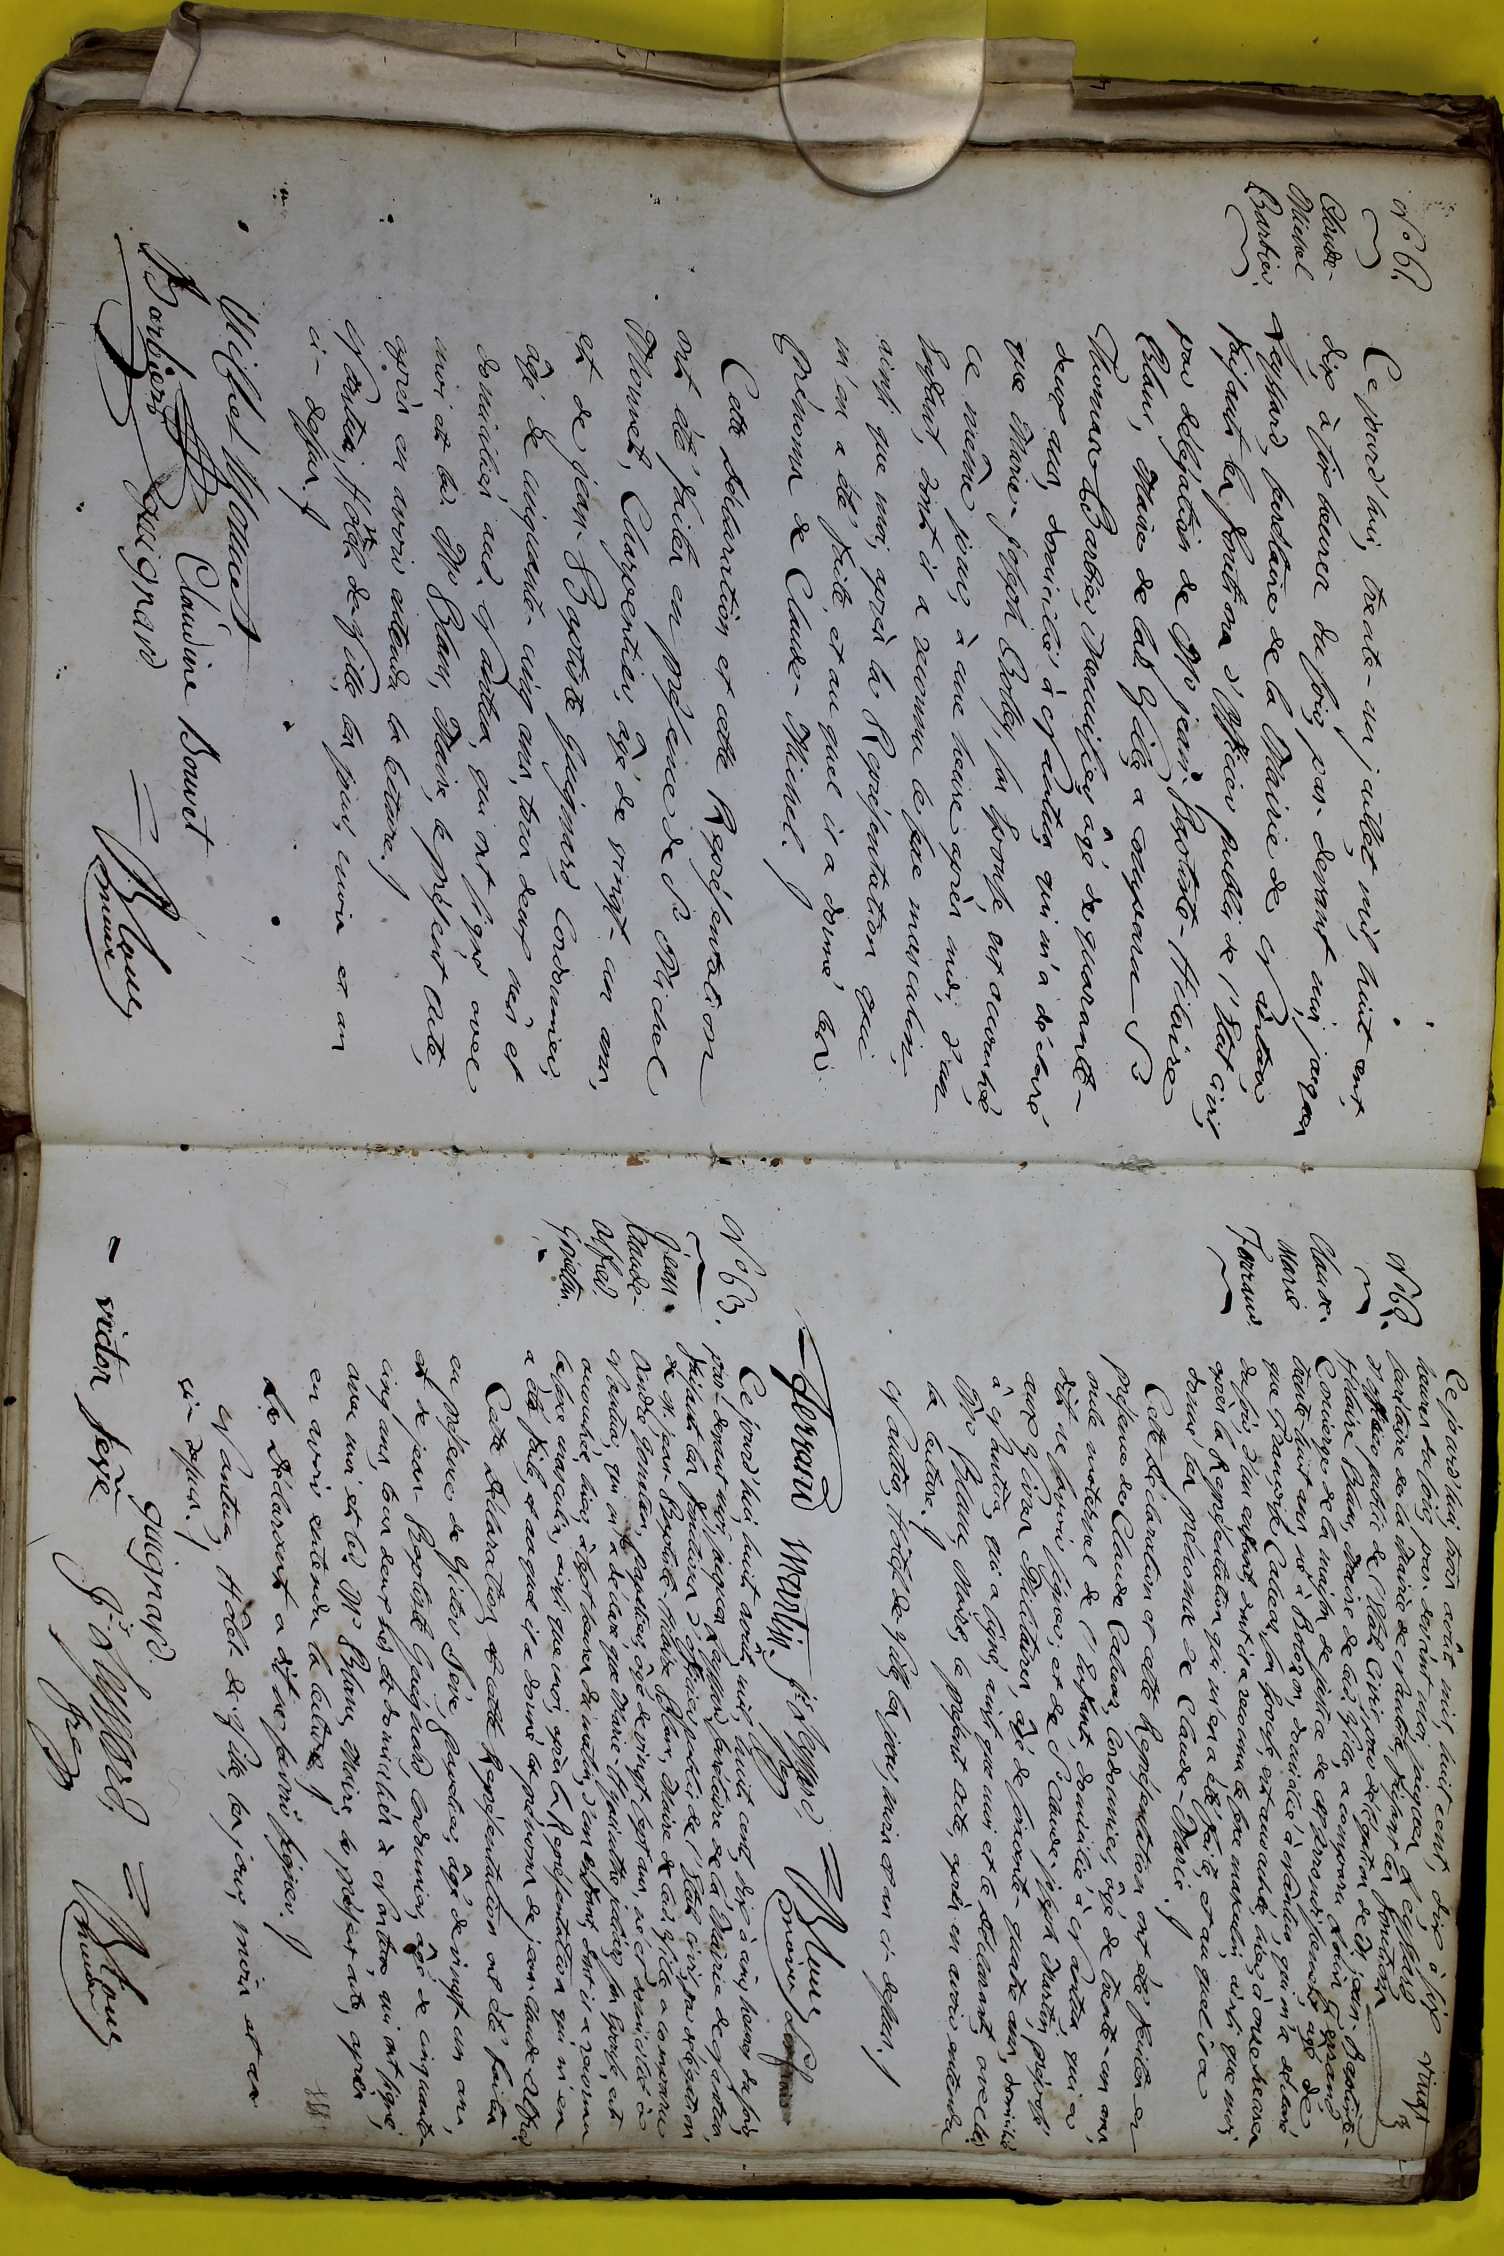 N° 61.
Claude-
Michel
Barbier.
Ce jourd'hui, trente-un juillet, mil huit cent
dix, à six heures du soir, par-devant moi, jacques
Leyssard, secrétaire de la Mairie de Nantua
faisant les fonctions d'officier public de l'Etat civil,
par délégation de Mr jean-Baptiste-Hilaire
Blanc, Maire de lad. Ville, a comparu Sr.
Thomas Barbier, Menuisier, âgé de quarante-
deux ans, domicilié à Nantua, qui m'a déclaré
que Marie-joseph son Epouse, est accouchée
ce même jour, à une heure après midi, d'un
Enfant, dont il a reconnu le sexe masculin,
ainsi que moi, après la Représentation qui
m'en a été faite, et au quel il a donné les
Prénoms de Claude-Michel.
Cette déclaration et cette Représentation
ont été faites en présence de Sr. Michel
Monnet, Charpentier, âgé de vingt-un ans,
et de jean-Baptiste Guignard, Cordonnier,
âgé de cinquante-cinq ans, tous deux nés et
domiciliés aud. Nantua, qui ont signé avec
moi et led. Mr Blanc, Maire, le présent acte,
après en avoir entendu la lecture.
Nantua, Hôtel de Ville, les jour, mois et an
ci-dessus.
Michel Monnet
Claudine Bouvet
Barbier guignard Blanc
maire
vingt
N° 62.
Claude-
Marie
Ferrand.
Ce jourd'hui, trois août mil, huit cent, dix, à six
heures du soir, par-devant moi, jacques Leyssard
secrétaire de la Mairie de Nantua, faisant les fonctions
d'officier public de l'Etat Civil, par délégation de Mr jean-Baptiste-
Hilaire Blanc, Maire de lad. Ville, a comparu Ferrand
Concierge de la maison de justice de arrondissement, âgé de
trente-huit ans, né à domicilié à Nantua qui m'a déclaré,
que Françoise son Epouse, est accouchée, hier, à onze heures
du soir, d'un enfant, dont il a reconnu le sexe masculin, ainsi que moi,
après la Représentation qui m'en a été faite, et au quel il a
donné les prénoms de Claude-Marie.
Cette déclaration et cette Représentation ont été faites en
présence de Claude Cordonnier, âgé de trente-un ans,
oncle maternel de l'enfant, domicilié à Nantua, qui a
dit ne savoir signer, et de Sr Claude-joseph Martin, préposé
aux Vivres Militaires, âgé de soixante-quatre ans, domicilié
à Nantua, qui a signé, ainsi que moi et le déclarant, avec led.
Mr Blanc, Maire, le présent acte, après en avoir entendu
la lecture.
Nantua, Hôtel de Ville, les jour, mois et an ci-dessus.
ferrand Martin js Leyssard Blanc
maire
N° 63.
jean-
Claude-
Alfred
Ce jourd'hui, huit août, mil, huit cent, dix, à cinq heures du soir,
par-devant moi, jacques Leyssard, secrétaire de la Mairie de Nantua,
faisant les fonctions d'officier public de l'Etat civil, par délégation
de M. jean-Baptiste-Hilaire Blanc, Maire de lad. Ville, a comparu
André âgé de vingt-sept ans, né et domicilié à
Nantua, qui m'a déclaré que Marie son Epouse, est
accouchée, hier, à sept heures du matin, d'un enfant, dont il a reconnu
le sexe masculin, ainsi que moi, après la Représentation qui m'en
a été faite, et au quel il a donné les prénoms de jean-Claude-Alfred
Cette déclaration et cette Représentation ont été faites
en présence de Victor Sève, âgé de vingt-un ans,
et de jean-Baptiste Guignard, Cordonnier, âgé de cinquante-
cinq ans, tous deux nés et domiciliés à Nantua, qui ont signé,
avec moi et led. Mr Blanc, Maire, le présent acte, après
en avoir entendu la lecture.
Le Déclarant a dit ne savoir signer.
Nantua, Hôtel de Ville, les jour, mois et an
ci-dessus.
guignard.
victor seve js Leyssard Blanc
maire